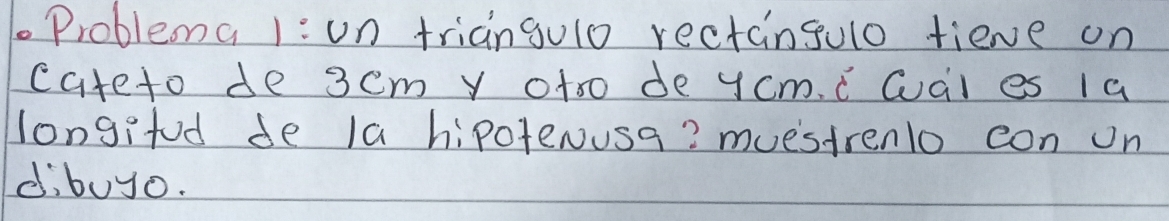 • Problema 1: un triángulo rectángulo tiene un
cateto de 3cm y otro de 4cm. ¿ Cuál es la
longitud de la hipotenusa? muéstrenlo con un
dibuyo.